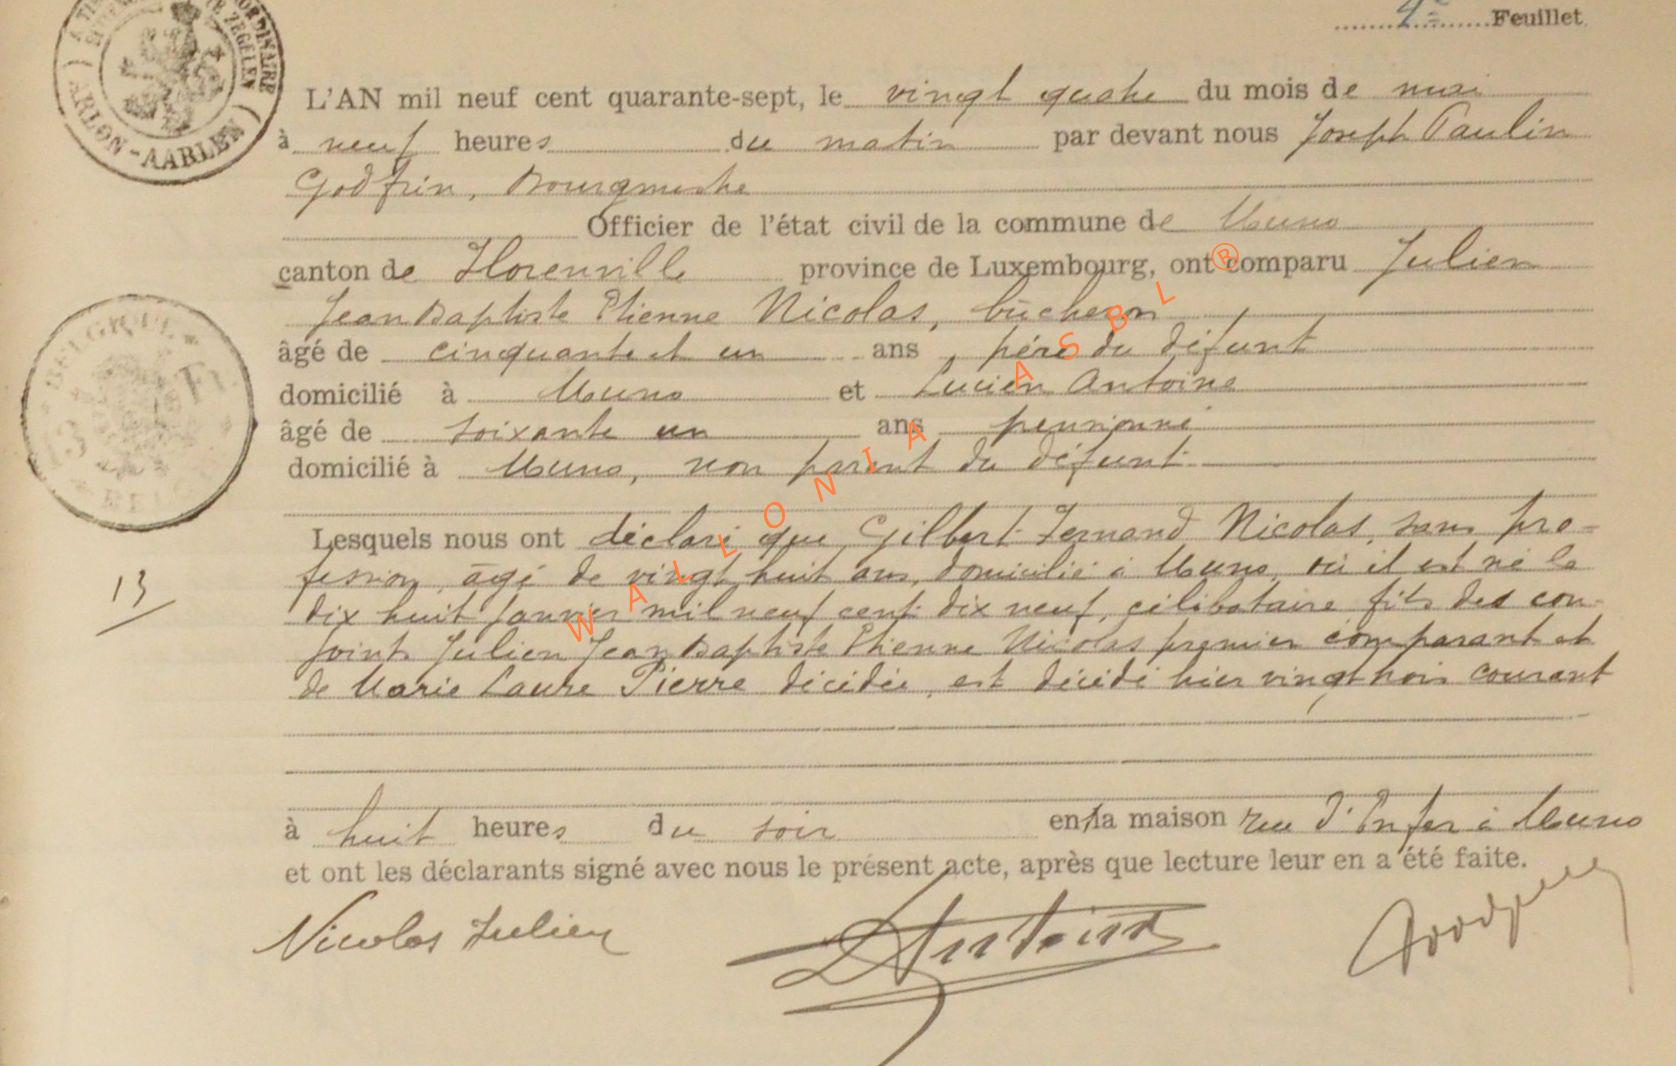 4e Feuillet
L'AN mil neuf cent quarante-sept, le vingt quatre du mois de mai
à neuf heures du matin par devant nous Joseph Paulin
Godfrin, Bourgmestre
Officier de l'état civil de la commune de Muno
canton de Florenville province de Luxembourg, ont comparu Julien
Jean Baptiste Etienne Nicolas, bûcheron
âgé de cinquante et un ans, père du défunt
domicilié à Muno et Lucien Antoine
âgé de soixante un ans pensionné
domicilié à Muno, non parent du défunt
Lesquels nous ont déclaré que Gilbert Fernand Nicolas, sans pro-
fession, âgé de vingt huit ans, domicilié à Muno, où il est né le
dix huit janvier mil neuf cent dix neuf, célibataire fils des con-
13
joints Julien Jean Baptiste Etienne Nicolas premier comparant et
de Marie Laure Pierre décédée, est décédé hier vingt trois courant
à huit heures du soir en la maison rue d'Enfer à Muno
et ont les déclarants signé avec nous le présent acte, après que lecture leur en a été faite.
Nicolas Julien LAntoine
ARLON-AARLEN
BELGIQUE
WALLONIA ASBL ®